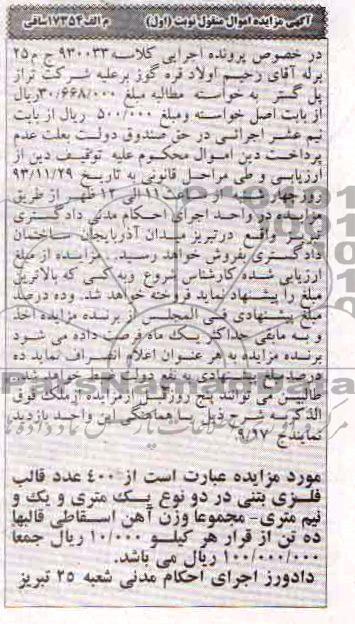 آگهی مزایده اموال منقول نوبت (اول) م الف ۱۷۳۵۴ ساقی
در خصوص پرونده اجرایی کلاسه ۹۳۰۰۳۳ ج م ۲۵
برله آقای رحیم اولاد قره گوز برعلیه شرکت تراز
پل گستر به خواسته مطالبه مبلغ ۳۰/۶۶۸/۰۰۰ ریال
از بابت اصل خواسته و مبلغ ۵۰۰/۰۰۰ ریال از بابت
نیم عشر اجرائی در حق صندوق دولت بعلت عدم
پرداخت دین اموال محکوم علیه توقیف دین از
ارزیابی و طی مراحل قانونی به تاریخ ۹۳/۱۱/۲۹
روز چهارشنبه از ساعت ۱۱ الی ۱۲ ظهر از طریق
مزایده در واحد اجرای احکام مدنی دادگستری
تبریز واقع در تبریز میدان آذربایجان ساختمان
دادگستری بفروش خواهد رسید. مزایده از مبلغ
ارزیابی شده کارشناس شروع و به کسی که بالاترین
مبلغ را پیشنهاد نماید فروخته خواهد شد. و ده درصد
مبلغ پیشنهادی فی المجلس از برنده مزایده اخذ
و به مابقی حداکثر یک ماه فرصت داده می شود
برنده مزایده به هر عنوان اعلام انصراف نماید ده
درصد مبلغ پیشنهادی به نفع دولت ضبط خواهد شد.
طالبین می توانند پنج روز قبل از مزایده از ملک فوق
الذکر به شرح ذیل با هماهنگی این واحد بازدید
نمایند ج ۹/۱۷
مورد مزایده عبارت است از ۴۰۰ عدد قالب
فلزی بتنی در دو نوع یک متری و یک و
نیم متری- مجموعا وزن آهن اسقاطی قالبها
ده تن از قرار هر کیلو ۱۰/۰۰۰ ریال جمعا
۱۰۰/۰۰۰/۰۰۰ ریال می باشد.
دادورز اجرای احکام مدنی شعبه ۲۵ تبریز
ParsNamadData